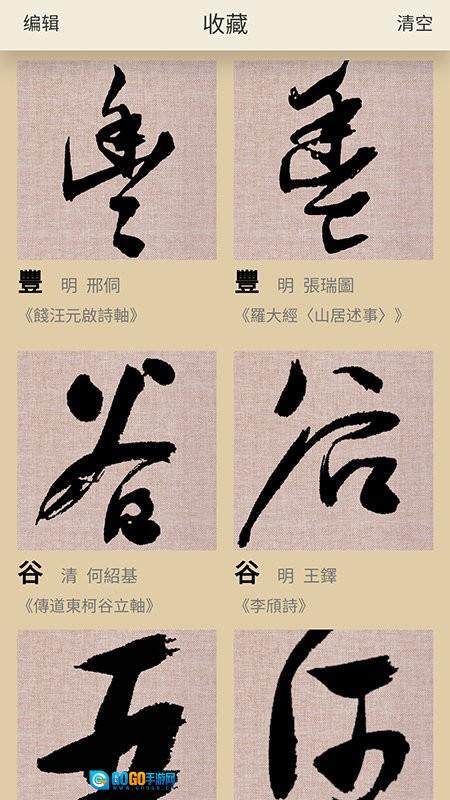 编辑 收藏 清空
豐 豐
豐 明 邢侗
《餞汪元啟詩軸》
豐 明 張瑞圖
《羅大經〈山居述事〉》
谷 谷
谷 清 何紹基
《傳道東柯谷立軸》
谷 明 王鐸
《李頎詩》
五
GOGO手游网